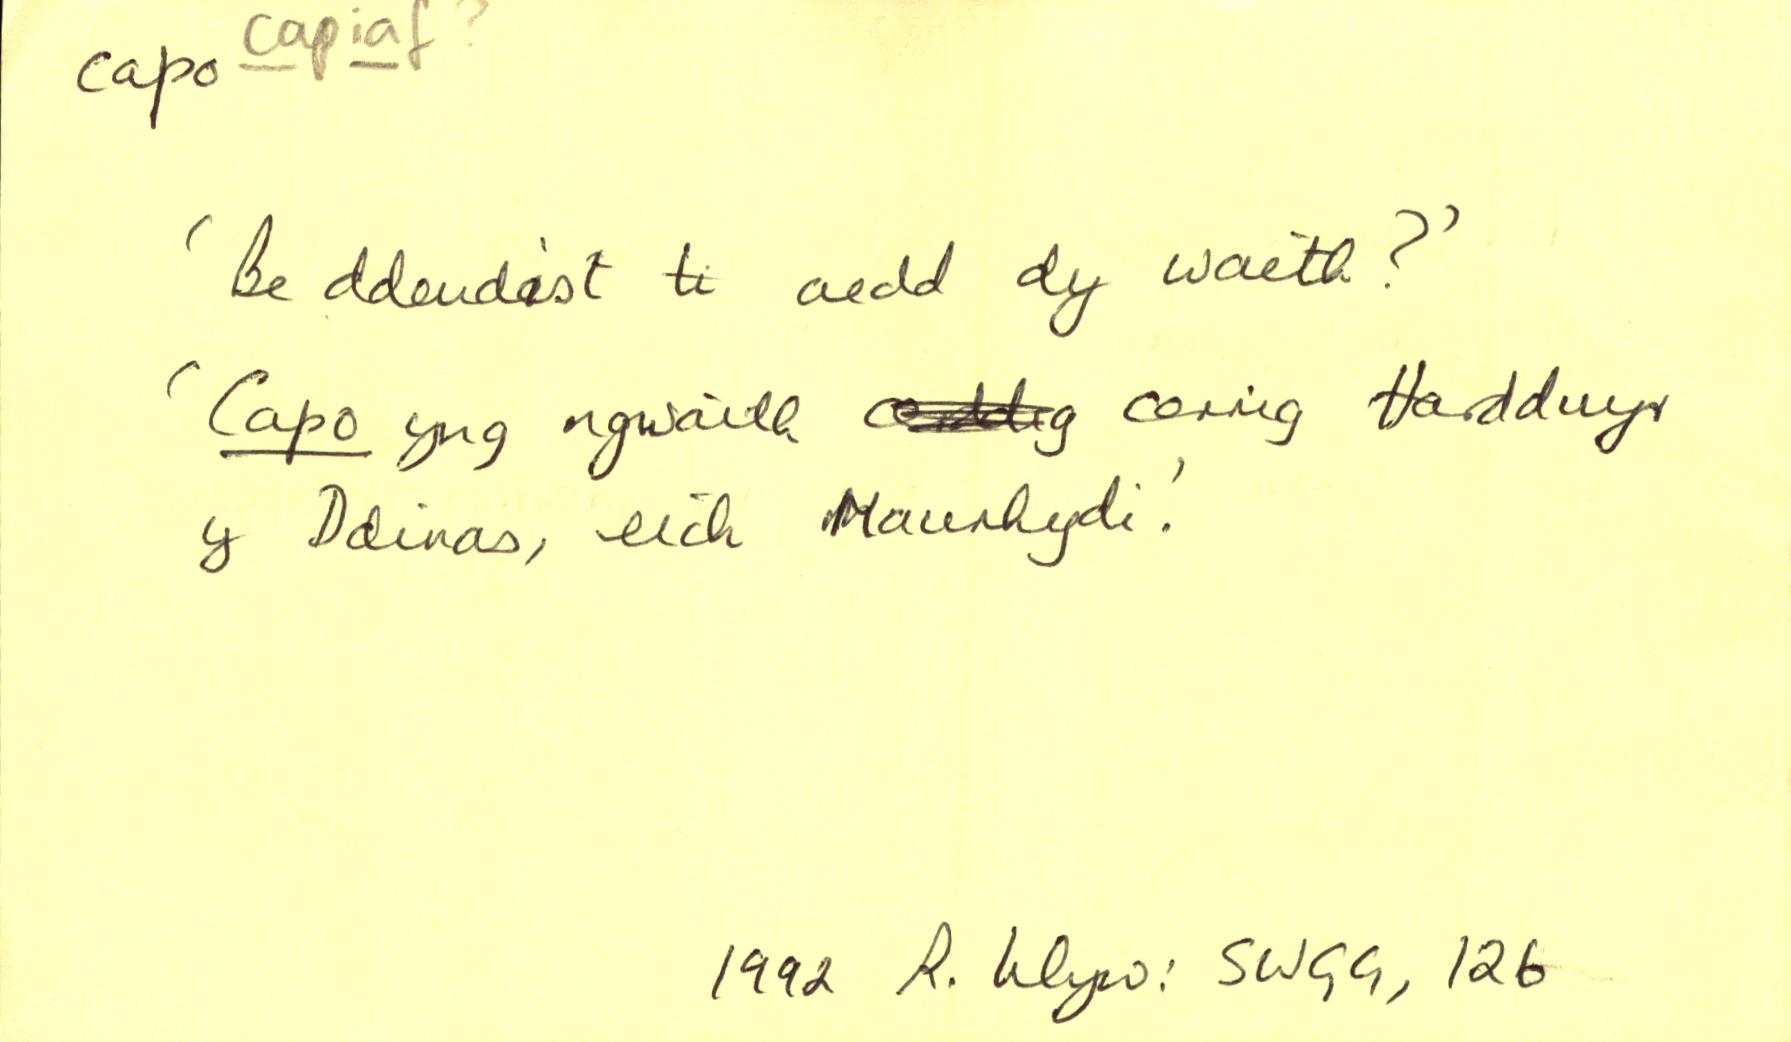 capo capiaf?
'Be ddeudist ti oedd dy waith?'
'Capo yng ngwaith cerrig Harddwyr
y Ddinas, eich Mawrhydi.'
1992 R. Wlyw: SWGG, 126